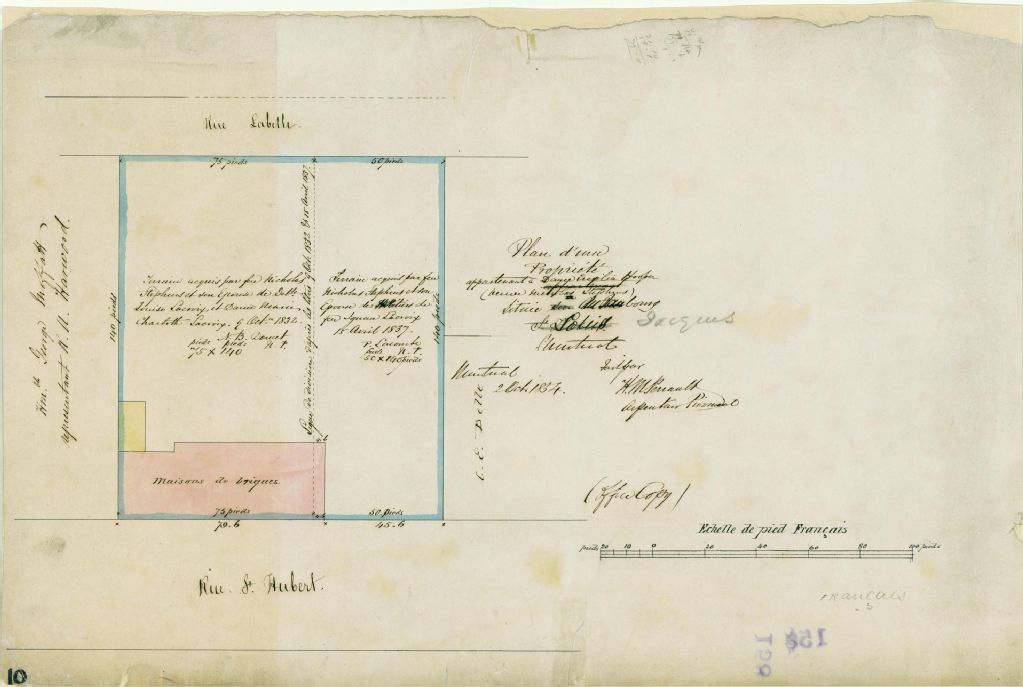 Rue Labelle.
75 pieds
50 pieds
Honble George Moffatt
représentant R. U. Harwood.
140 pieds
Terrain acquis par feu Nicholas
Stephens et son Epouse de Delle
Louise Lacroix et Dame Marie
Charlotte Lacroix. 9 Octre 1832.
N. B. Doucet
N. P.
pieds pieds
75 x 140
Ligne de division
9 Oct. 1832 & 15 Avril 1837.
Terrain acquis par feu
Nicholas Stephens et son
Epouse des
de
feu
Lacroix
15 Avril 1837.
P. Lacombe
N. P.
50 x 140 pieds
140 pieds
C. E. Belle
Maisons de briques
75 pieds
50 pieds
79.6
45.6
Rue St. Hubert.
Plan d'une
Propriété
appartenant à
(veuve
Stephens)
Située
St.
Jacques
Montreal
Montreal
2 Oct.
fait par
H. M. Perrault
Arpenteur Provincial
(Office Copy)
Echelle de pied Français
pieds 20 10 0 20 40 60 80 100 pieds
FRANCAIS
158
159
10